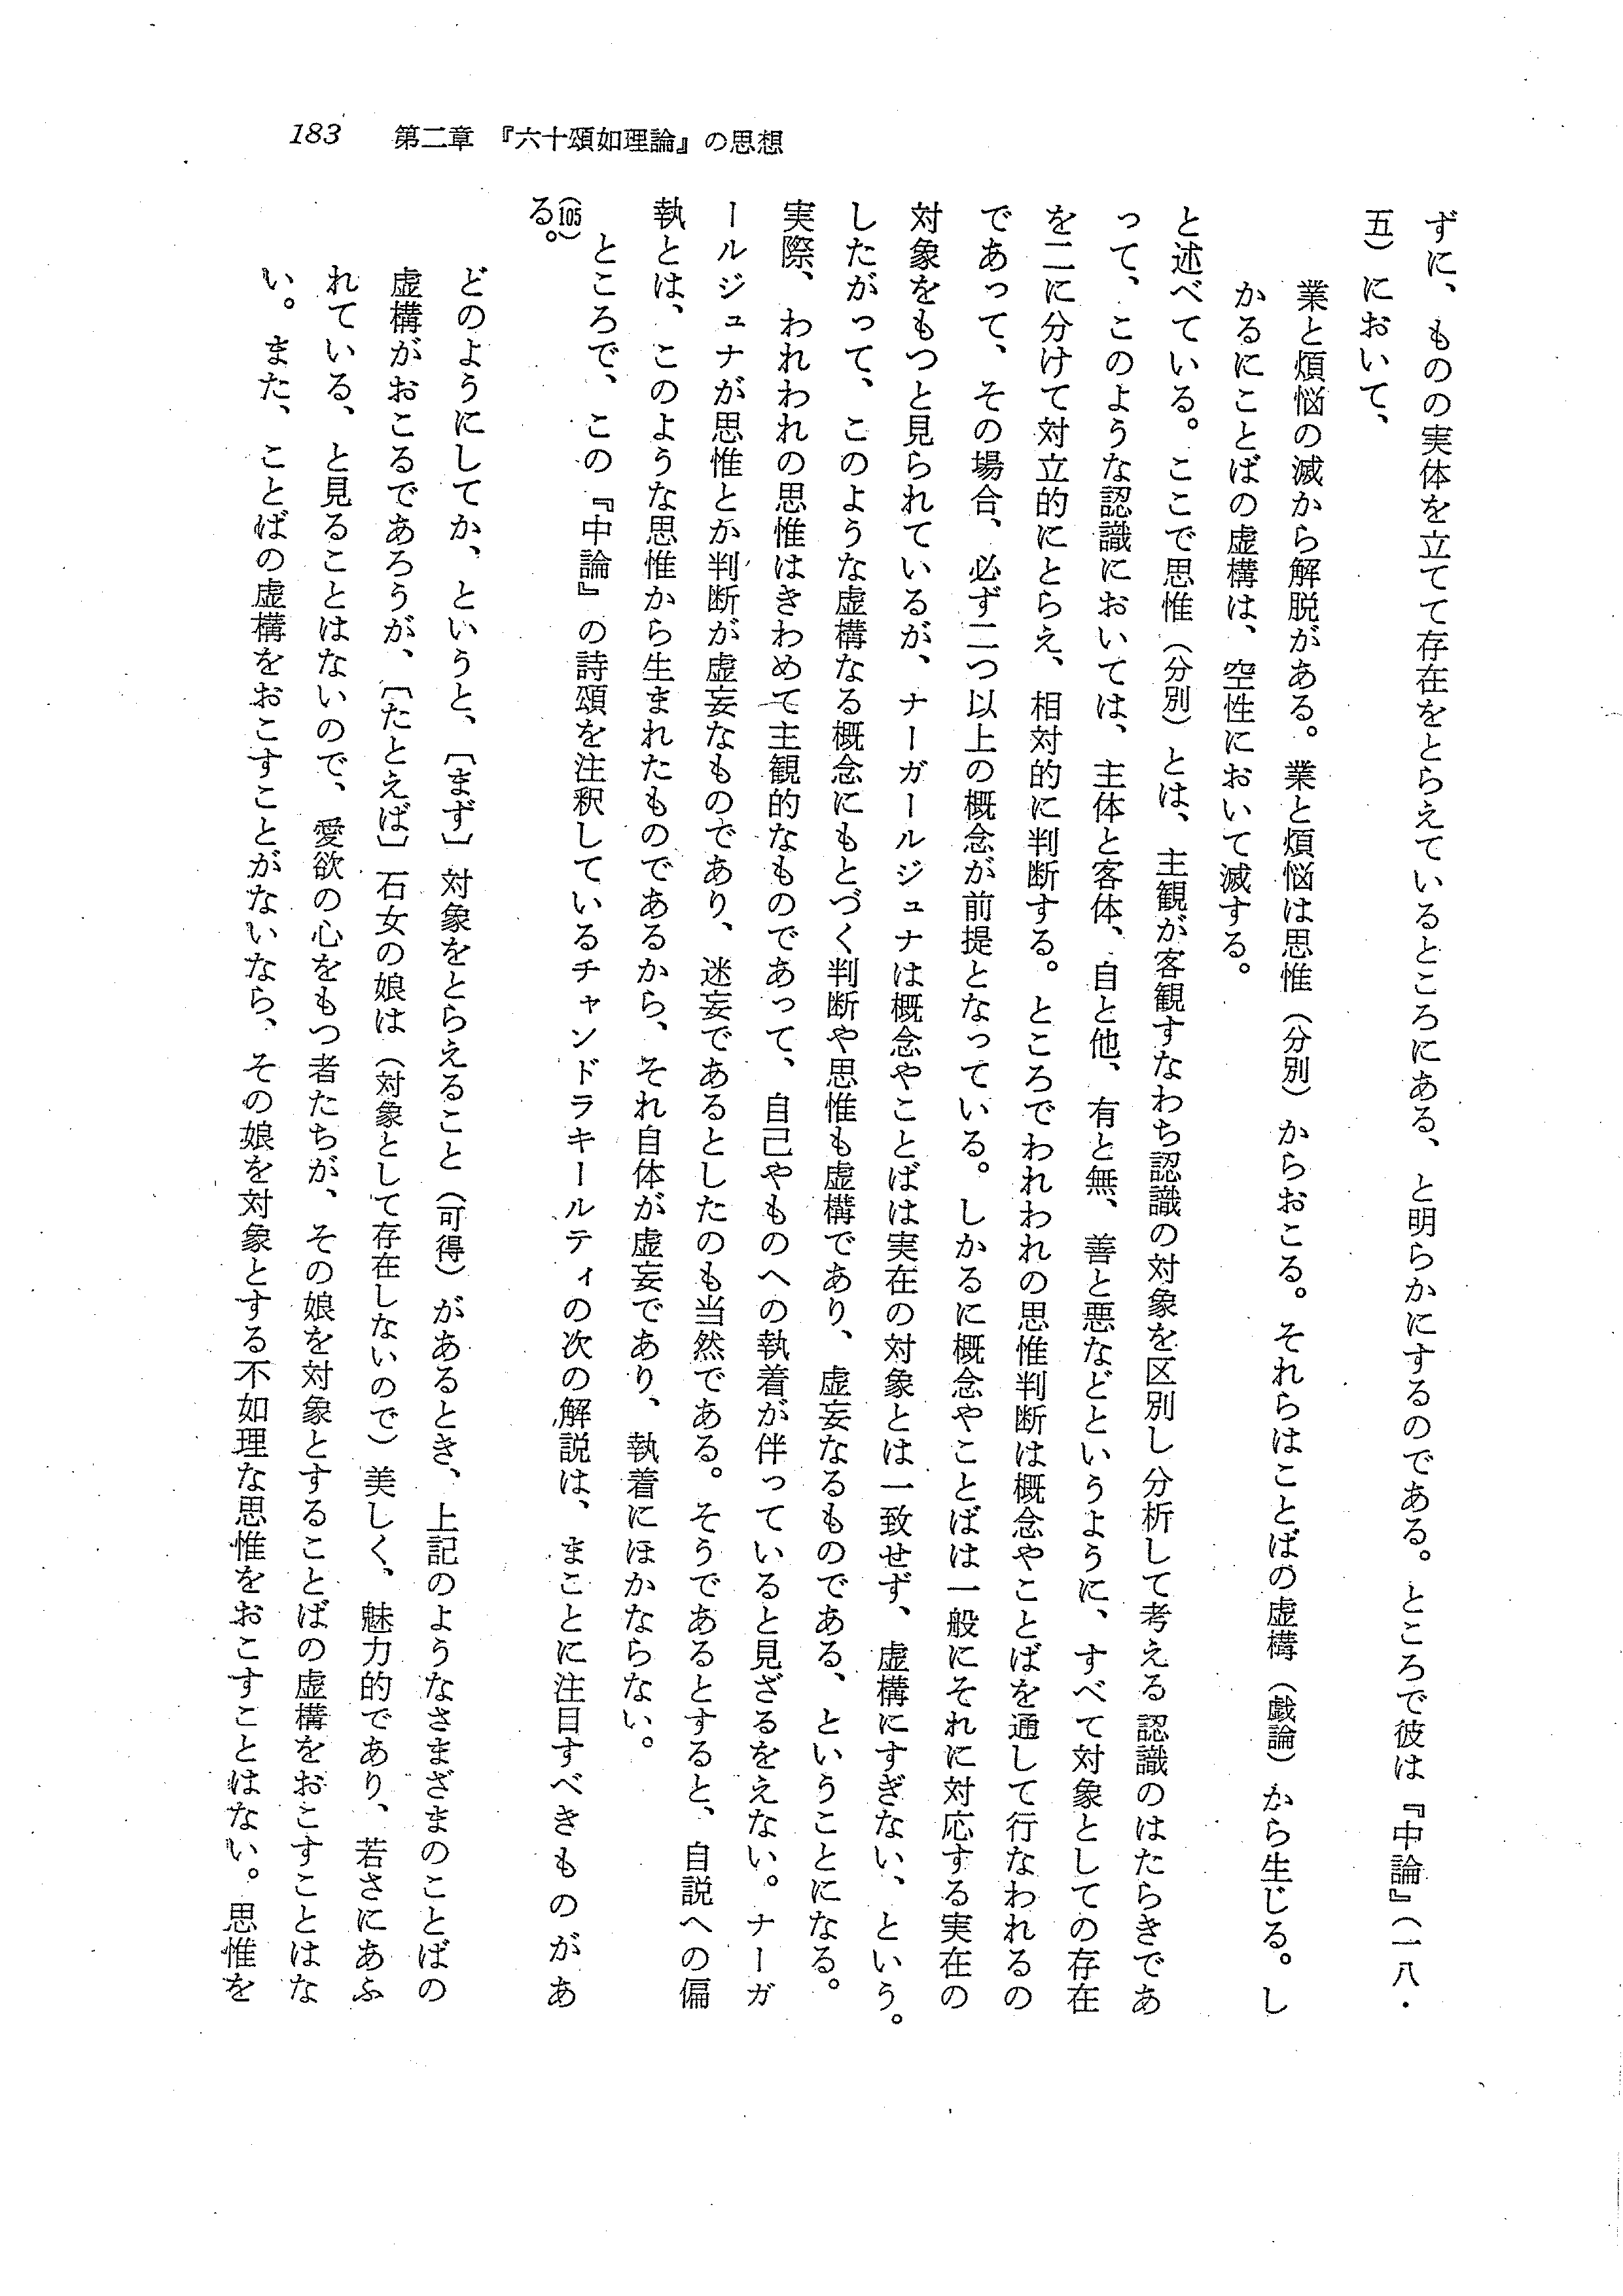 183　第二章　『六十頌如理論』の思想
ずに、ものの実体を立てて存在をとらえているところにある、と明らかにするのである。ところで彼は『中論』（一八・
五）において、
業と煩悩の滅から解脱がある。業と煩悩は思惟（分別）からおこる。それらはことばの虚構（戯論）から生じる。し
かるにことばの虚構は、空性において滅する。
と述べている。ここで思惟（分別）とは、主観が客観すなわち認識の対象を区別し分析して考える認識のはたらきであ
って、このような認識においては、主体と客体、自と他、有と無、善と悪などというように、すべて対象としての存在
を二に分けて対立的にとらえ、相対的に判断する。ところでわれわれの思惟判断は概念やことばを通して行なわれるの
であって、その場合、必ず二つ以上の概念が前提となっている。しかるに概念やことばは一般にそれに対応する実在の
対象をもつと見られているが、ナーガールジュナは概念やことばは実在の対象とは一致せず、虚構にすぎない、という。
したがって、このような虚構なる概念にもとづく判断や思惟も虚構であり、虚妄なるものである、ということになる。
実際、われわれの思惟はきわめて主観的なものであって、自己やものへの執着が伴っていると見ざるをえない。ナーガ
ールジュナが思惟とか判断が虚妄なものであり、迷妄であるとしたのも当然である。そうであるとすると、自説への偏
執とは、このような思惟から生まれたものであるから、それ自体が虚妄であり、執着にほかならない。
ところで、この『中論』の詩頌を注釈しているチャンドラキールティの次の解説は、まことに注目すべきものがあ
る。(105)
どのようにしてか、というと、〔まず〕対象をとらえること（可得）があるとき、上記のようなさまざまのことばの
虚構がおこるであろうが、〔たとえば〕石女の娘は（対象として存在しないので）美しく、魅力的であり、若さにあふ
れている、と見ることはないので、愛欲の心をもつ者たちが、その娘を対象とすることばの虚構をおこすことはな
い。また、ことばの虚構をおこすことがないなら、その娘を対象とする不如理な思惟をおこすことはない。思惟を